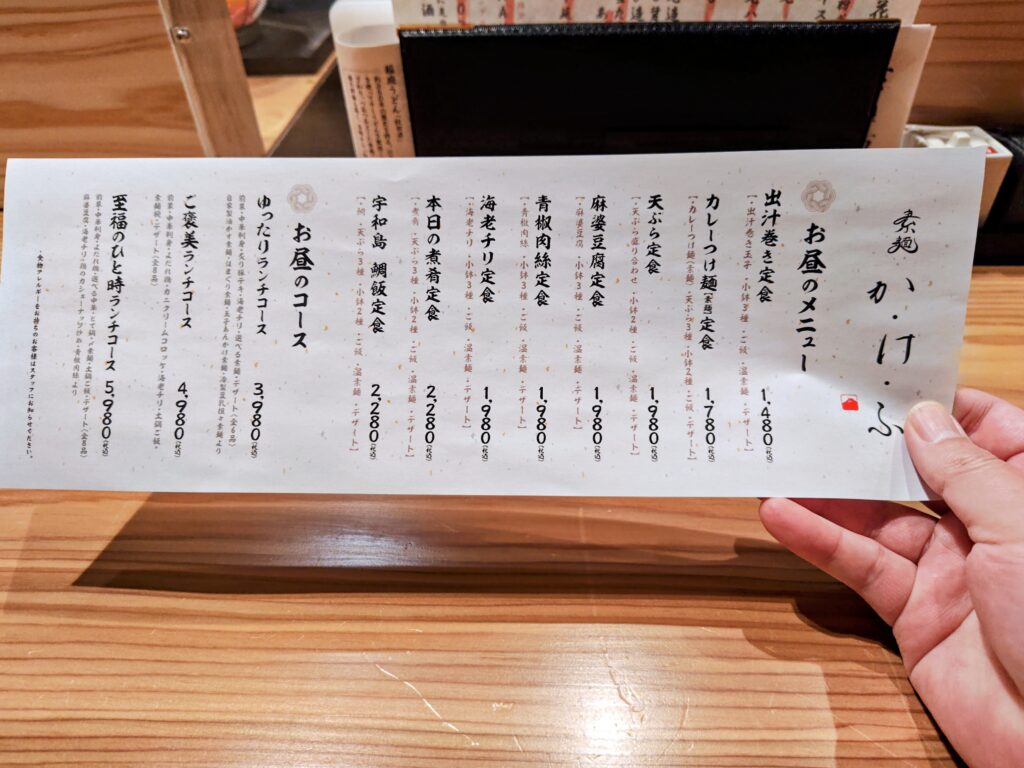 素麺 か・け・ふ
お昼のメニュー
出汁巻き定食 1,480(税込)
【・出汁巻き玉子 ・小鉢3種 ・ご飯 ・温素麺 ・デザート】
カレーつけ麺(素麺)定食 1,780(税込)
【・カレーつけ麺(素麺) ・天ぷら3種 ・小鉢2種 ・ご飯 ・デザート】
天ぷら定食 1,980(税込)
【・天ぷら盛り合わせ ・小鉢2種 ・ご飯 ・温素麺 ・デザート】
麻婆豆腐定食 1,980(税込)
【・麻婆豆腐 ・小鉢3種 ・ご飯 ・温素麺 ・デザート】
青椒肉絲定食 1,980(税込)
【・青椒肉絲 ・小鉢3種 ・ご飯 ・温素麺 ・デザート】
海老チリ定食 1,980(税込)
【・海老チリ ・小鉢3種 ・ご飯 ・温素麺 ・デザート】
本日の煮肴定食 2,280(税込)
【・煮魚 ・天ぷら3種 ・小鉢2種 ・ご飯 ・温素麺 ・デザート】
宇和島 鯛飯定食 2,280(税込)
【・鯛 ・天ぷら3種 ・小鉢2種 ・ご飯 ・温素麺 ・デザート】
お昼のコース
ゆったりランチコース 3,980(税込)
前菜・中華刺身・炙り操テキ・海老チリ・選べる素麺・デザート(全6品)
ご褒美ランチコース 4,980(税込)
前菜・中華刺身・よだれ鶏・カニクリームコロッケ・海老チリ・土鍋ご飯・
素麺椀・デザート(全8品)
至福のひと時ランチコース 5,980(税込)
食物アレルギーをお持ちのお客様はスタッフにお知らせください。